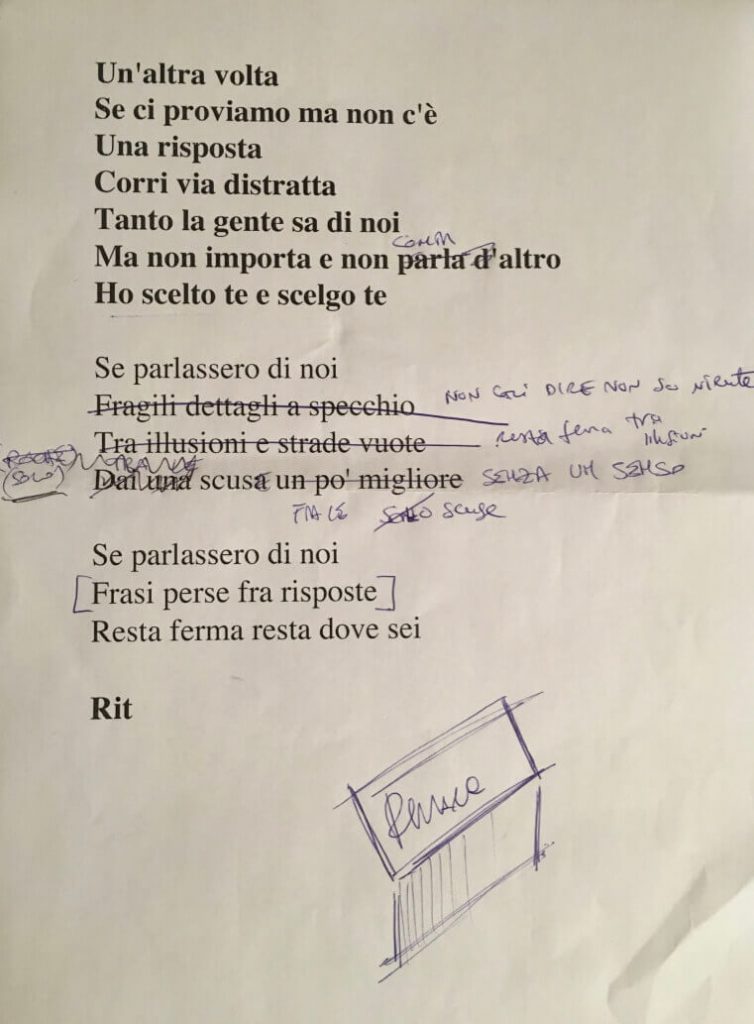 Un'altra volta
Se ci proviamo ma non c'è
Una risposta
Corri via distratta
Tanto la gente sa di noi
Ma non importa e non parla d'altro
Ho scelto te e scelgo te
Se parlassero di noi
Fragili dettagli a specchio NON DIRE NON SO NIENTE
Tra illusioni e strade vuote resta ferma tra illusioni
(SOLO)
Dai una scusa e un po' migliore SENZA UN SENSO
FRA LE scuse
Se parlassero di noi
[Frasi perse fra risposte]
Resta ferma resta dove sei
Rit